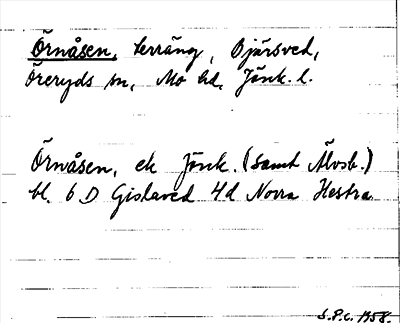 Örnåsen, terräng, Bjärsved,
Öreryds sn, Mo hd, Jönk. l.
Örnåsen, ek Jönk. (samt Älvsb.)
bl. 6 D Gislaved 4d Norra Hestra
S.P.C. 1958.